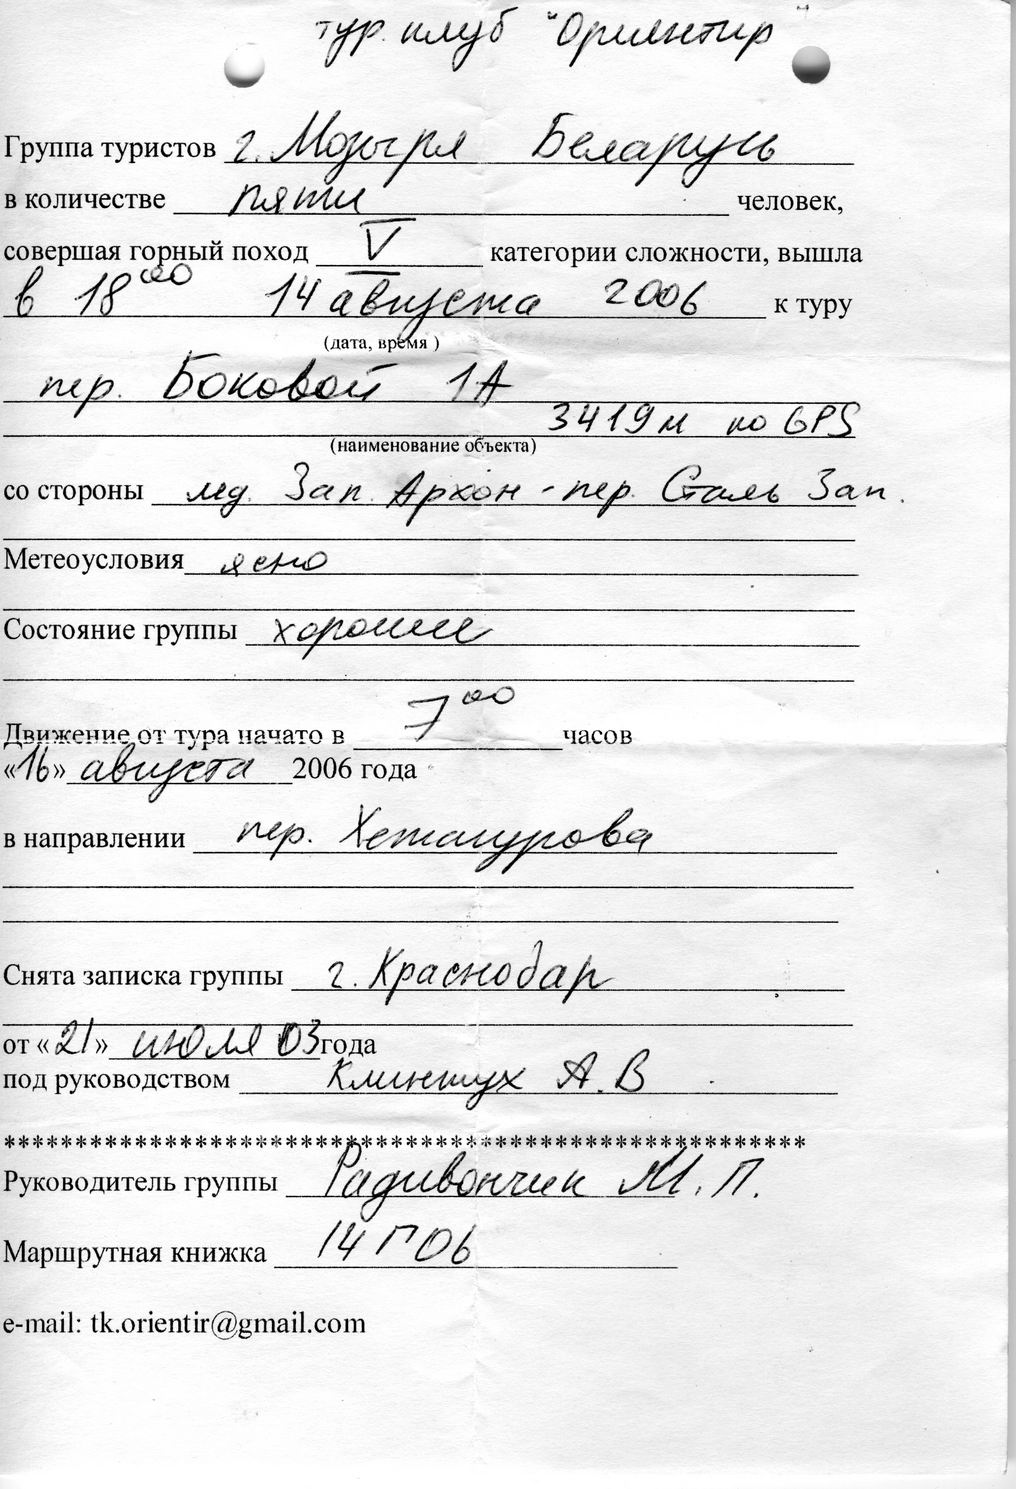 тур. клуб "Ориентир"
Группа туристов г. Мозыря Беларусь
в количестве пяти человек,
совершая горный поход V категории сложности, вышла
в 18⁰⁰ 14 августа 2006 к туру
(дата, время )
пер. Боковой 1А
3419 м по GPS
(наименование объекта)
со стороны лед. Зап. Архон - пер. Сталь Зап.
Метеоусловия ясно
Состояние группы хорошее
Движение от тура начато в 7⁰⁰ часов
«16» августа 2006 года
в направлении пер. Хетагурова
Снята записка группы г. Краснодар
от «21» июля 03 года
под руководством Клинтух А.В
*****************************************************
Руководитель группы Радивончик М.П.
Маршрутная книжка 14 Г 06
e-mail: tk.orientir@gmail.com